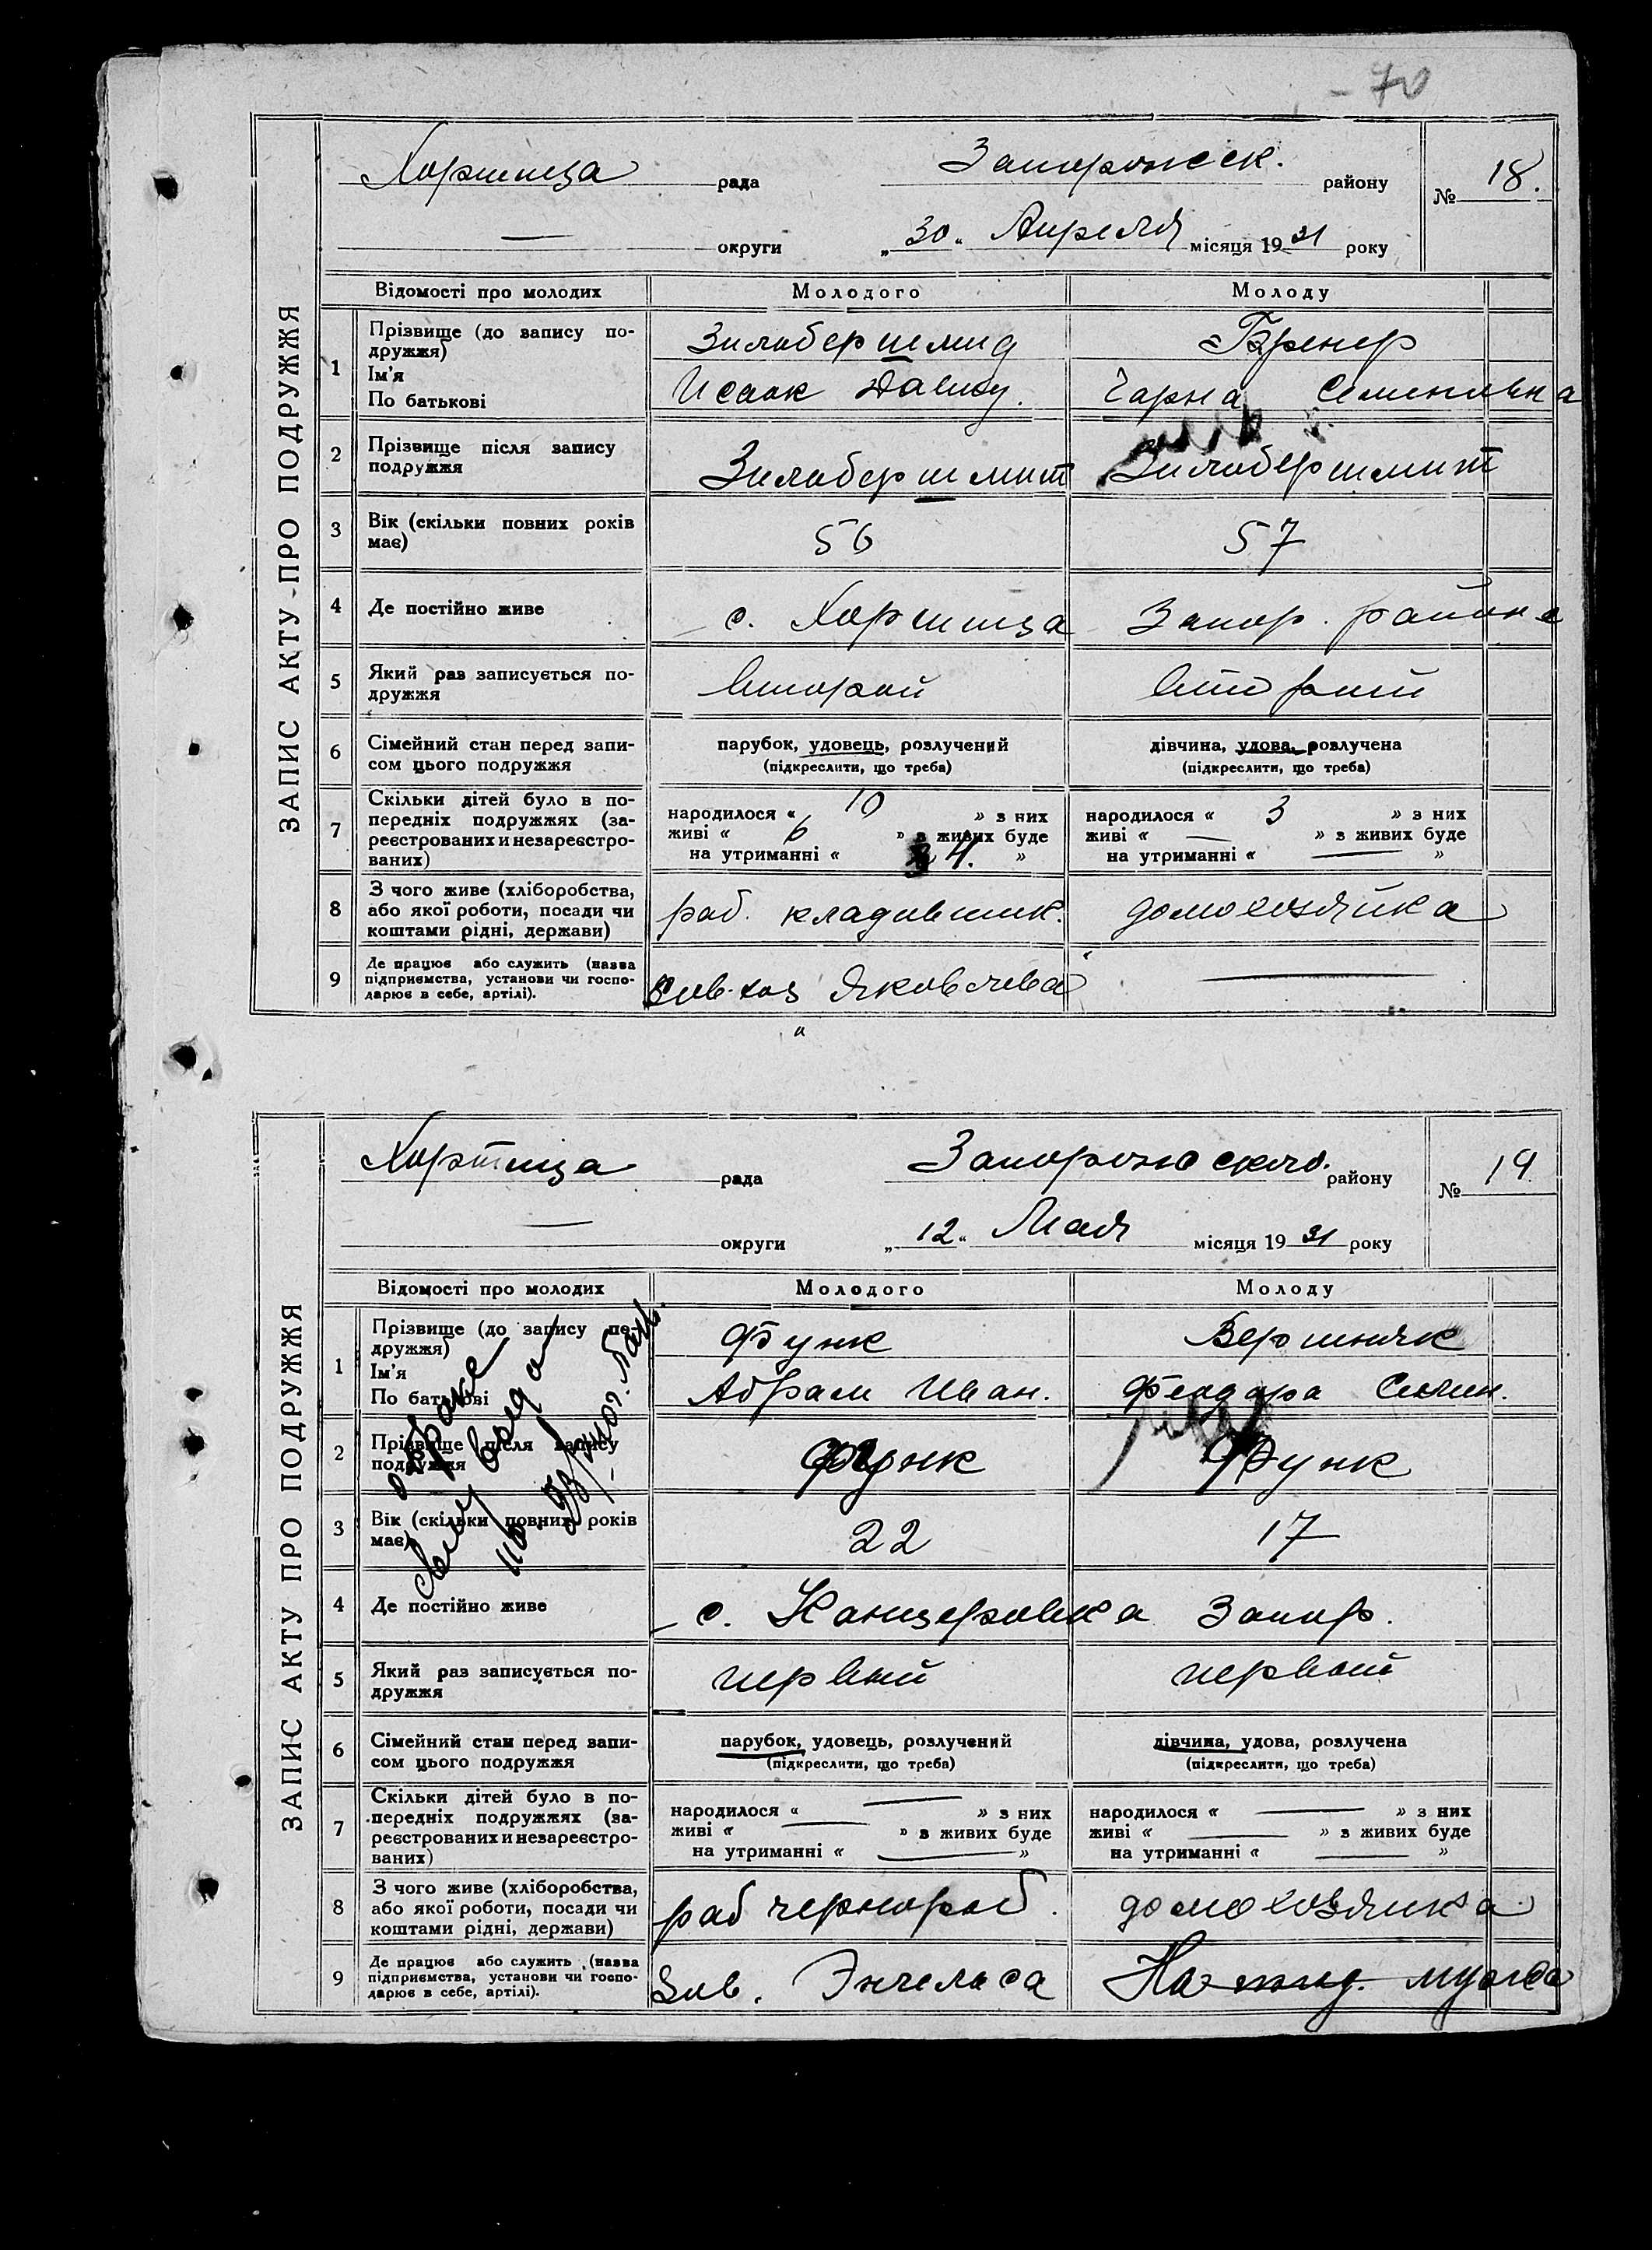 - 70
ЗАПИС АКТУ ПРО ПОДРУЖЖЯ
Хортица рада Запорожск. району № 18.
— округи „30“ Апреля місяця 1931 року
Відомості про молодих Молодого Молоду
1 Прізвище (до запису по-
дружжя) Зильбершмид Бренер
Ім'я
По батькові Исаак Давид. Чарна Семеновна
2 Прізвище після запису
подружжя Зильбершмит Зильбершмит
3 Вік (скільки повних років
має) 56 57
4 Де постійно живе с. Хортица Запор. района
5 Який раз записується по-
дружжя второй второй
6 Сімейний стан перед запи-
сом цього подружжя парубок, удовець, розлучений
(підкреслити, що треба) дівчина, удова, розлучена
(підкреслити, що треба)
7 Скільки дітей було в по-
передніх подружжях (за-
реєстрованих и незареєстро-
ваних) народилося « 10 » з них
живі « 6 » з живих буде
на утриманні « 4. »
народилося « 3 » з них
живі « — » з живих буде
на утриманні « — »
8 З чого живе (хліборобства,
або якої роботи, посади чи
коштами рідні, держави) раб. кладовщик. домохозяйка
9 Де працює або служить (назва
підприємства, установи чи госпо-
дарює в себе, артілі). Сов-хоз Яковлева —
ЗАПИС АКТУ ПРО ПОДРУЖЖЯ
Хортица рада Запорожского. району № 19
— округи „12“ Мая місяця 1931 року
Відомості про молодих Молодого Молоду
1 Прізвище (до запису по-
дружжя) Функ Вершняк
Ім'я
По батькові Абрам Иван. Феодора Семен.
2 Прізвище після запису
подружжя Функ Функ
о браке
3 Вік (скільки повних років
має) 22 17
4 Де постійно живе с. Канцеровка Запор.
5 Який раз записується по-
дружжя первый первый
6 Сімейний стан перед запи-
сом цього подружжя парубок, удовець, розлучений
(підкреслити, що треба) дівчина, удова, розлучена
(підкреслити, що треба)
7 Скільки дітей було в по-
передніх подружжях (за-
реєстрованих и незареєстро-
ваних) народилося « — » з них
живі « — » з живих буде
на утриманні « — »
народилося « — » з них
живі « — » з живих буде
на утриманні « — »
8 З чого живе (хліборобства,
або якої роботи, посади чи
коштами рідні, держави) раб чернораб. домохозяйка
9 Де працює або служить (назва
підприємства, установи чи госпо-
дарює в себе, артілі). Зав. Энгельса На ижд. мужа